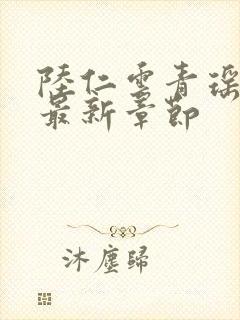 陸仁雲青瑶
最新章節
沐塵歸